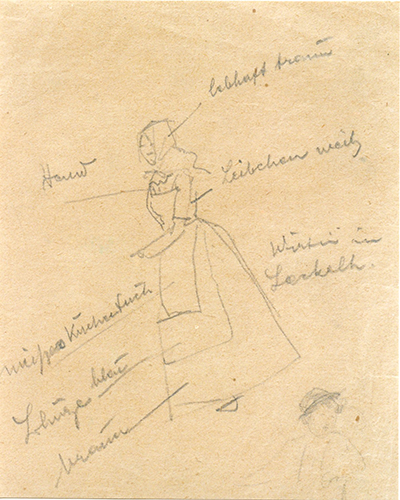 lebhaft braun
Hemd
Leibchen weiß
Wirtin in
weißes Küchentuch
Schürze blau
braun